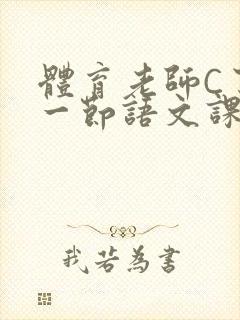 體育老師C
一節語文課
我若為書